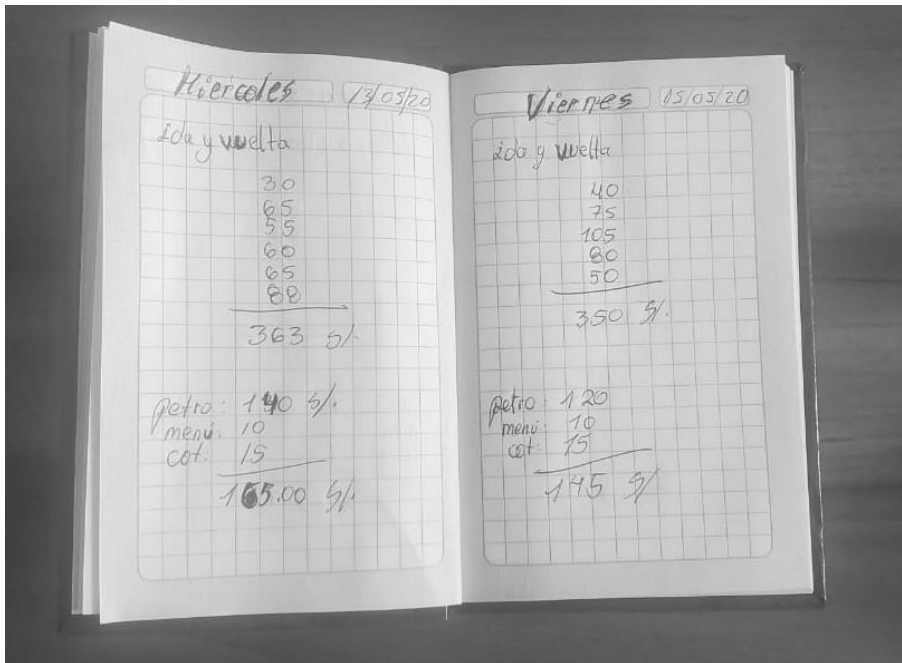 Miercoles 13/05/20
ida y vuelta
30
65
55
60
65
88
363 S/.
petro: 140 S/.
menú: 10
cot: 15
165.00 S/.
Viernes 15/05/20
ida y vuelta
40
75
105
80
50
350 S/.
petro: 120
menú: 10
cot: 15
145 S/